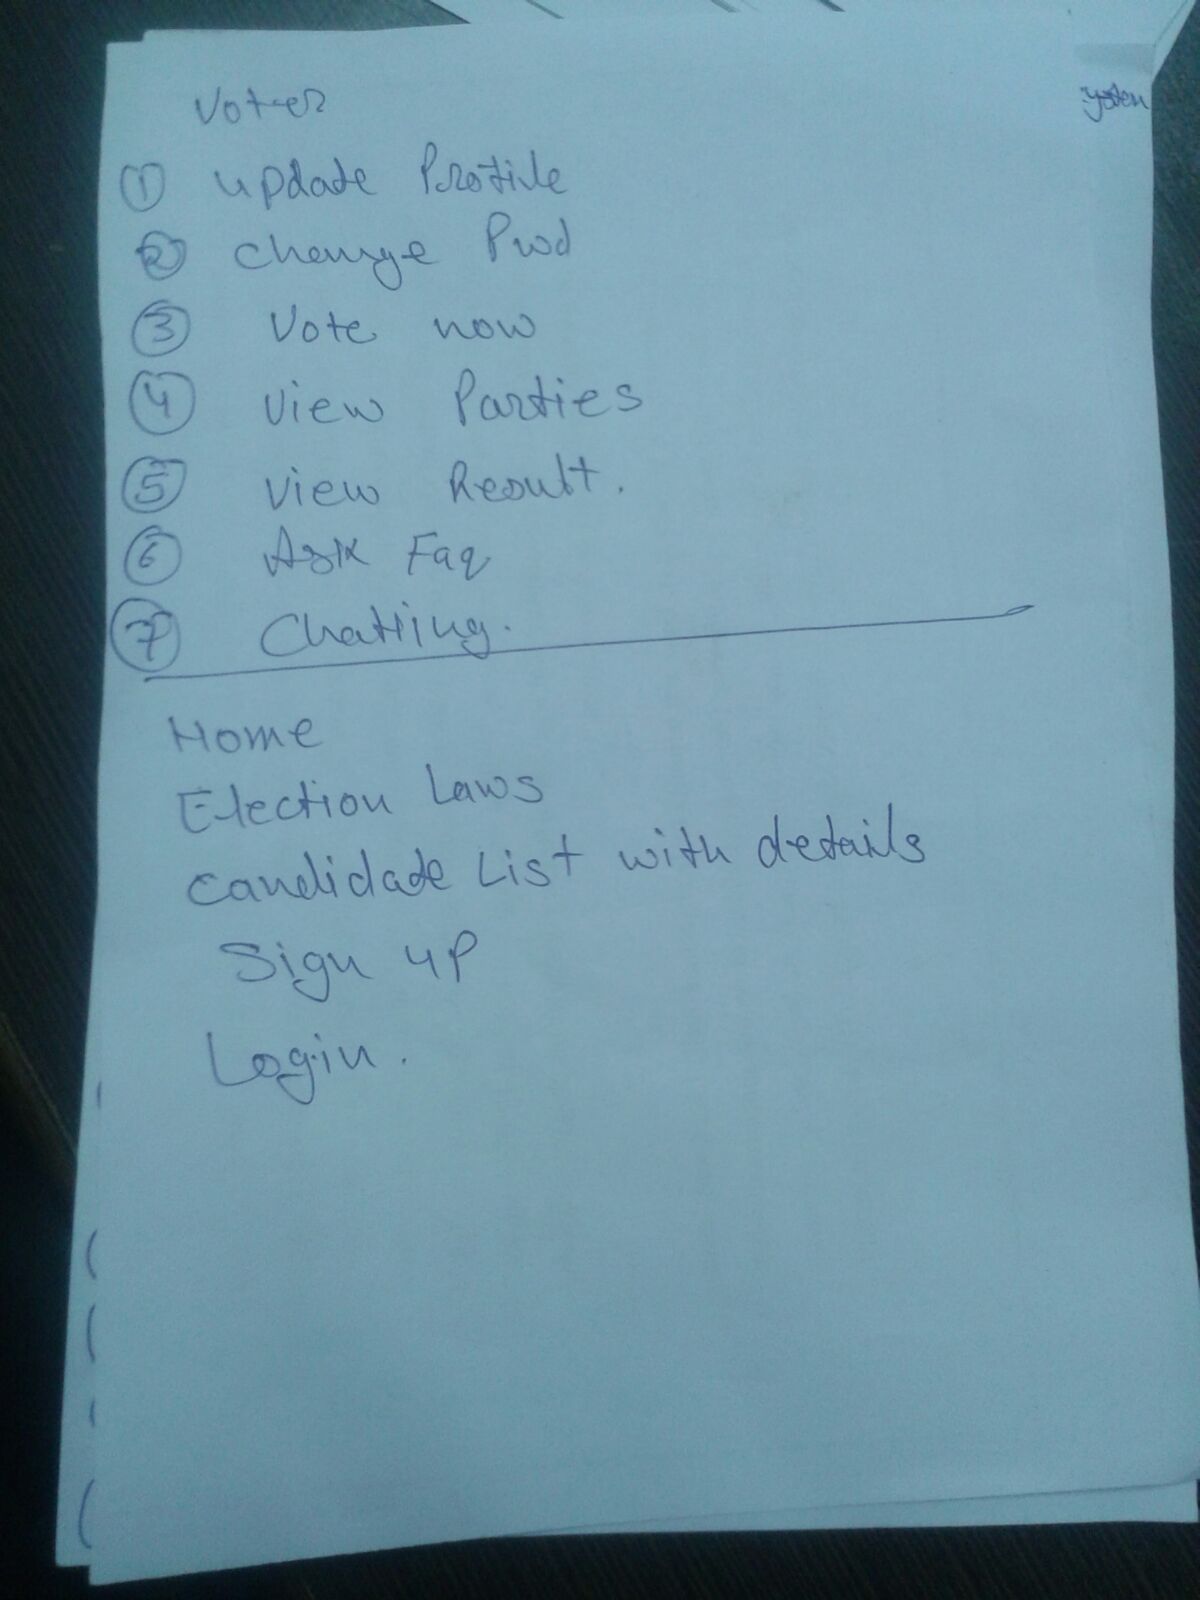 Voter
① update Profile
② change Pwd
③ Vote now
④ View Parties
⑤ View Result.
⑥ Ask Faq
⑦ Chatting.
Home
Election Laws
Candidate List with details
Sign up
Login.